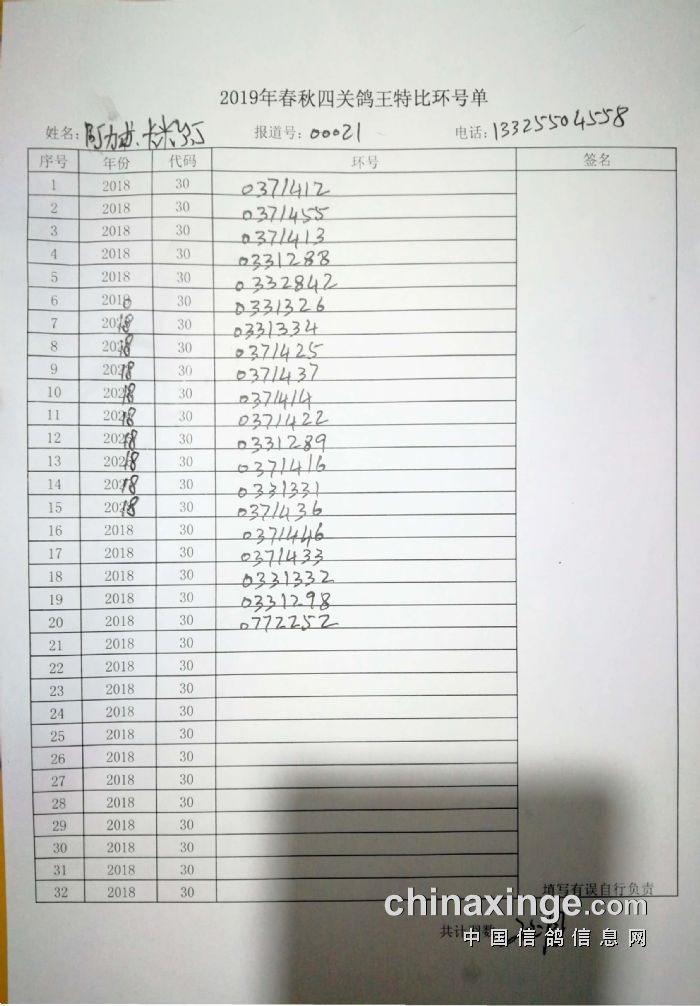 2019年春秋四关鸽王特比环号单
姓名: 阿力甫.卡米 报道号: 00021 电话: 13325504558
序号 年份 代码 环号 签名
1 2018 30 0371412
2 2018 30 0371455
3 2018 30 0371413
4 2018 30 0331288
5 2018 30 0332842
6 2018 30 0331326
7 2018 30 0331334
8 2018 30 0371425
9 2018 30 0371437
10 2018 30 0371414
11 2018 30 0371422
12 2018 30 0331289
13 2018 30 0371416
14 2018 30 0331331
15 2018 30 0371436
16 2018 30 0371446
17 2018 30 0371433
18 2018 30 0331332
19 2018 30 0331298
20 2018 30 0772252
21 2018 30
22 2018 30
23 2018 30
24 2018 30
25 2018 30
26 2018 30
27 2018 30
28 2018 30
29 2018 30
30 2018 30
31 2018 30
32 2018 30
填写有误自行负责
chinaxinge.com
共计 数
中国信鸽信息网